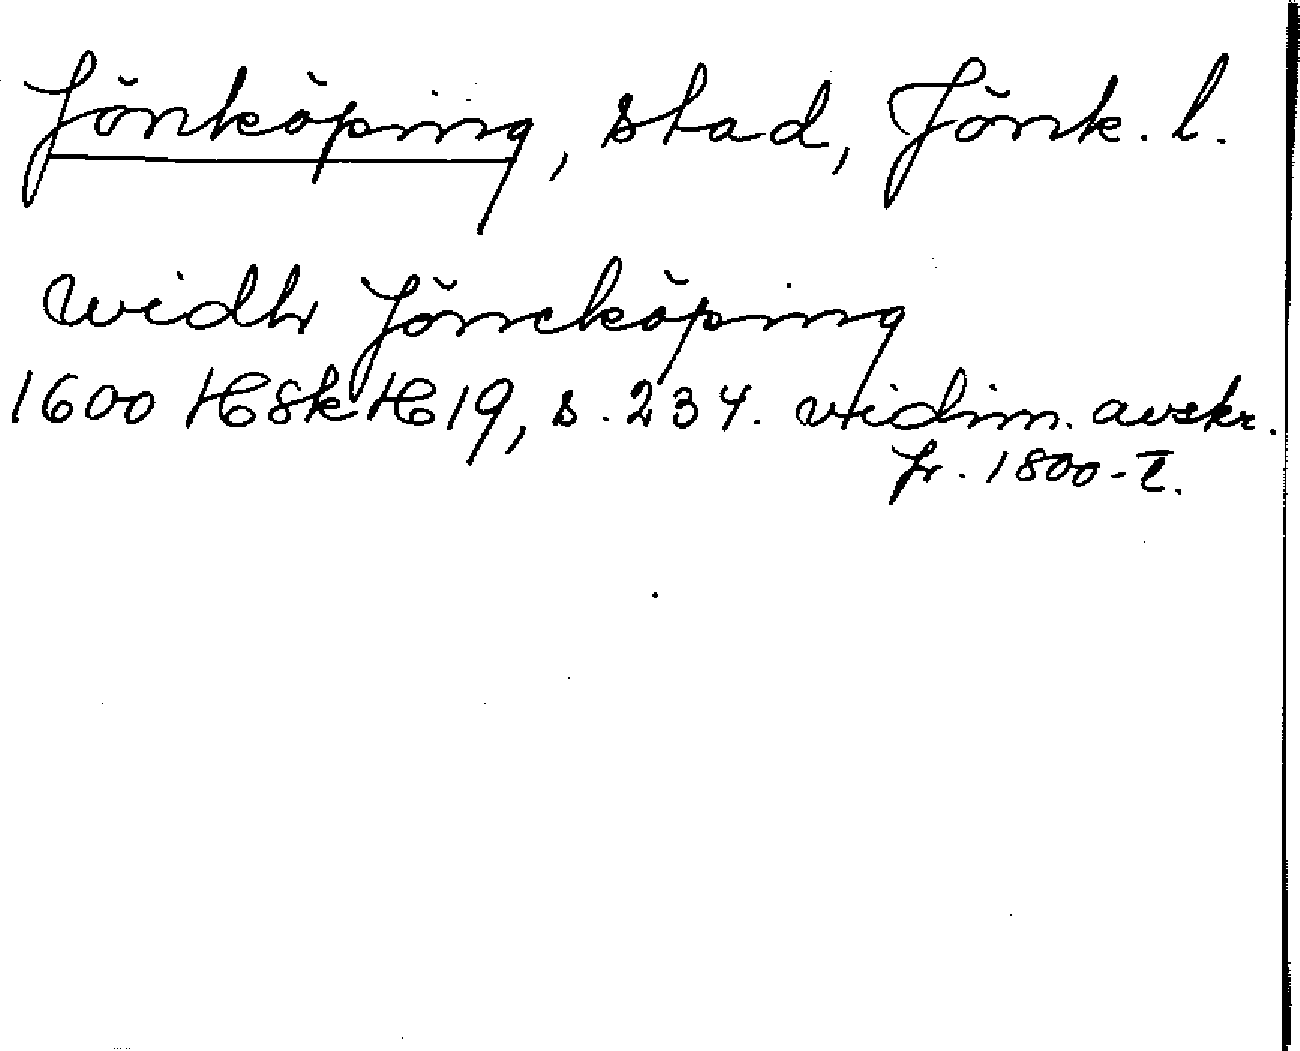 Jönköping, stad, Jönk. l.
widh Jöneköping
1600 HSkH 19, s. 234. vidim. avskr.
fr. 1800-t.